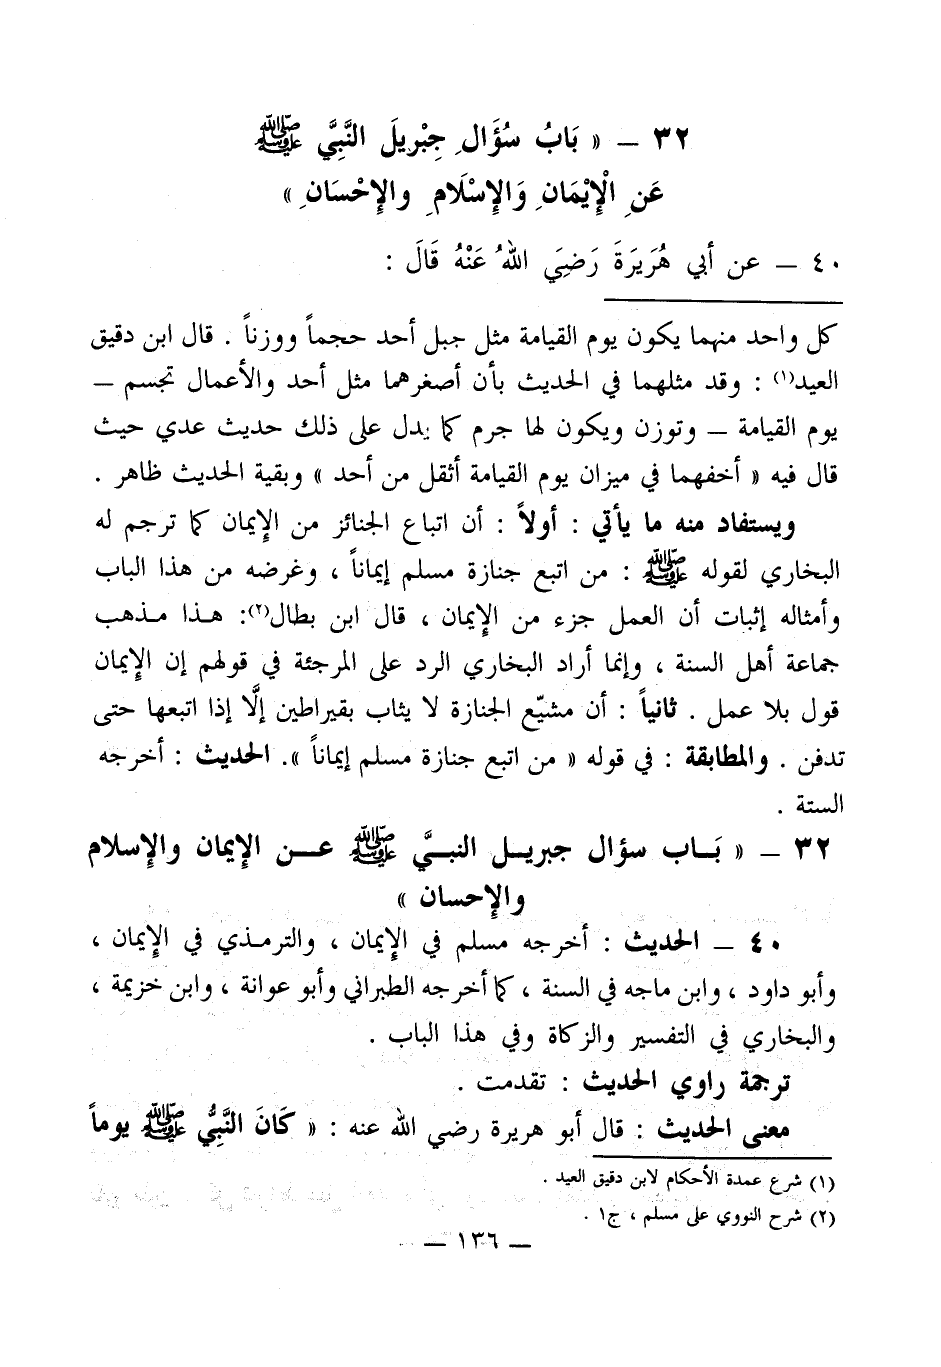 ٣٢ ــ « بَابُ سُؤَالِ جِبْرِيلَ النَّبِيَّ ﷺ
عَنِ الْإِيْمَانِ وَالإِسْلَامِ والإِحْسَانِ »
٤٠ ــ عن أبي هُرَيرَةَ رَضِيَ اللهُ عَنْهُ قَالَ :
كل واحد منهما يكون يوم القيامة مثل جبل أحد حجماً ووزناً . قال ابن دقيق
العيد(١) : وقد مثلهما في الحديث بأن أصغرهما مثل أحد والأعمال تجسم ــ
يوم القيامة ــ وتوزن ويكون لها جرم كما يدل على ذلك حديث عدي حيث
قال فيه « أخفهما في ميزان يوم القيامة أثقل من أحد » وبقية الحديث ظاهر .
ويستفاد منه ما يأتي : أولاً : أن اتباع الجنائز من الإيمان كما ترجم له
البخاري لقوله ﷺ : من اتبع جنازة مسلم إيماناً ، وغرضه من هذا الباب
وأمثاله إثبات أن العمل جزء من الإيمان ، قال ابن بطال(٢): هـذا مـذهب
جماعة أهل السنة ، وإنما أراد البخاري الرد على المرجئة في قولهم إن الإيمان
قول بلا عمل . ثانياً : أن مشيّع الجنازة لا يثاب بقيراطين إلَّا إذا اتبعها حتى
تدفن . والمطابقة : في قوله « من اتبع جنازة مسلم إيماناً ». الحديث : أخرجه
الستة .
٣٢ ــ « بَـاب سؤال جبريـل النبـيَّ ﷺ عـن الإيمان والإسلام
والإحسان »
٤٠ ــ الحديث : أخرجه مسلم في الإيمان ، والترمـذي في الإيمان ،
وأبو داود ، وابن ماجه في السنة ، كما أخرجه الطبراني وأبو عوانة ، وابن خزيمة ،
والبخاري في التفسير والزكاة وفي هذا الباب .
ترجمة راوي الحديث : تقدمت .
معنى الحديث : قال أبو هريرة رضي الله عنه : « كَانَ النَّبِيُّ ﷺ يوماً
(١) شرع عمدة الأحكام لابن دقيق العيد .
(٢) شرح النووي على مسلم ، ج١ .
ــ ١٣٦ ــ